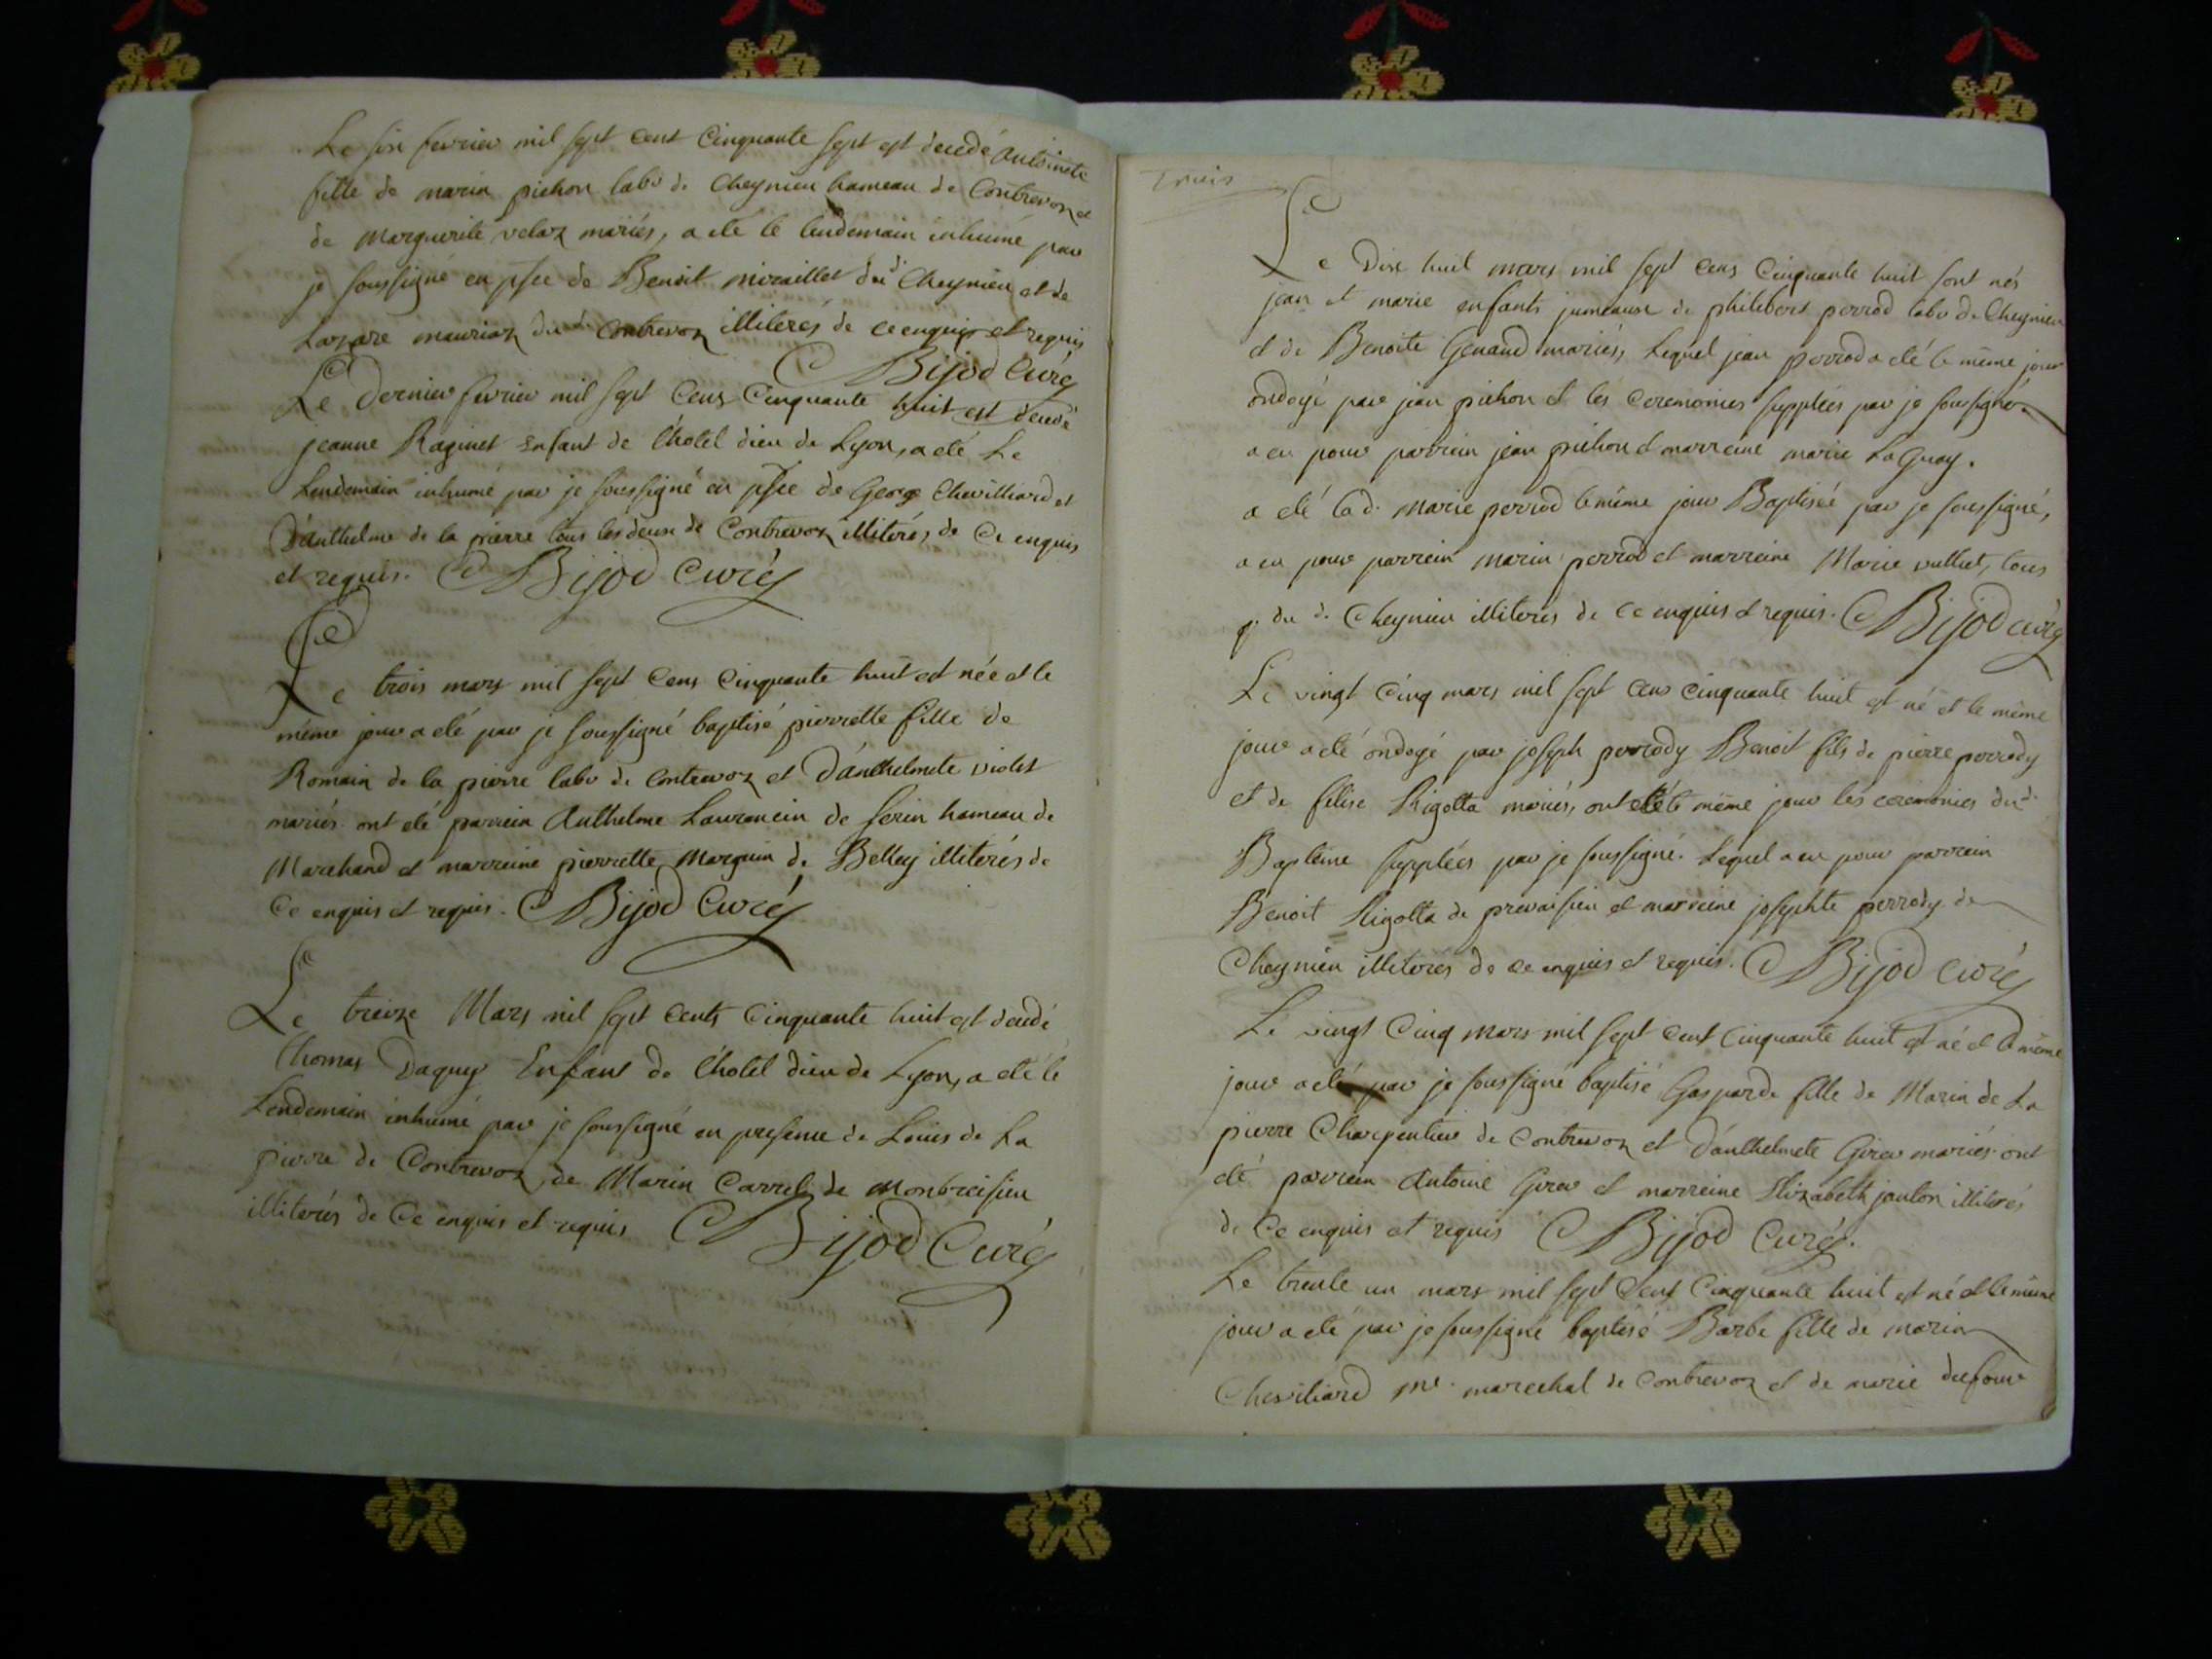 Le six fevrier mil sept cent Cinquante sept est decedé antoinete
fille de marin pichon labr de Cheynieu hameau de Contrevoz et
de Marguerite velaz mariés, a eté le lendemain inhumé par
je soussigné en psce de Benoit miraillet dud. Cheynieu et de
Lazare mauriaz dud. Contrevoz illiterés de ce enquis et requis
Bijod Curé
Le dernier fevrier mil sept Cens Cinquante huit est decedé
jeanne Raginet Enfant de l'hotel dieu de Lyon, a eté Le
Lendemain inhumé par je soussigné en psce de George Chevilliard et
D'anthelme de la pierre tous les deux de Contrevoz illiterés, de Ce enquis
et requis. Bijod Curé
Le trois mars mil sept Cens Cinquante huit est née et le
même jour a eté par je soussigné baptisé pierrette fille de
Romain de la pierre labr de Contrevoz et D'anthelmete violet
mariés. ont eté parrein Anthelme Laurancin de Serin hameau de
Marchand et marreine pierrette Marguin de Belley illiterés de
Ce enquis et requis. Bijod Curé
Le treize Mars mil sept Cents Cinquante huit est decedé
Thomas Daguey Enfant de l'hotel dieu de Lyon, a eté le
Lendemain inhumé par je soussigné en presence de Louis de La
pierre de Contrevoz, de Marin Carrel de Montbreisieu
illiterés de Ce enquis et requis Bijod Curé
trois
Le Dix huit mars mil sept Cens Cinquante huit sont nés
jean et marie enfants jumeaux de philibert perrod labr de Cheynieu
et de Benoite Genaud mariés, Lequel jean perrod a eté le même jour
ondoyé par jean pichon et les Ceremonies supplées par je soussigné
a eu pour parrein jean pichon et marreine marie LaGuay.
a eté lad. Marie perrod le même jour Baptiseé par je soussigné,
a eu pour parrein marin perrod et marreine Marie vulliet, tous
dud. Cheynieu illiterés de Ce enquis et requis. Bijod curé
Le vingt Cinq mars mil sept Cens cinquante huit est né et le même
jour a eté ondoyé par joseph perrody Benoit fils de pierre perrody
et de felise Rigotta mariés, ont eté le même jour les ceremonies dud.
Baptême supplées par je soussigné. Lequel a eu pour parrein
Benoit Rigotta de prevaisieu et marreine josephte perrody de
Cheynieu illiterés de ce enquis et requis. Bijod Curé
Le vingt Cinq mars mil sept Cent Cinquante huit est né et le même
jour a eté par je soussigné baptisé Gasparde fille de Marin de La
pierre Charpentier de Contrevoz et D'anthelmete Girer mariés. ont
eté parrein Antoine Girer et marreine Elizabeth janton illiterés
de Ce enquis et requis Bijod Curé.
Le trente un mars mil sept Cent Cinquante huit est né et le même
jour a eté par je soussigné baptisé Barbe fille de marin
Cheviliard Me. marechal de Contrevoz et de marie dufour